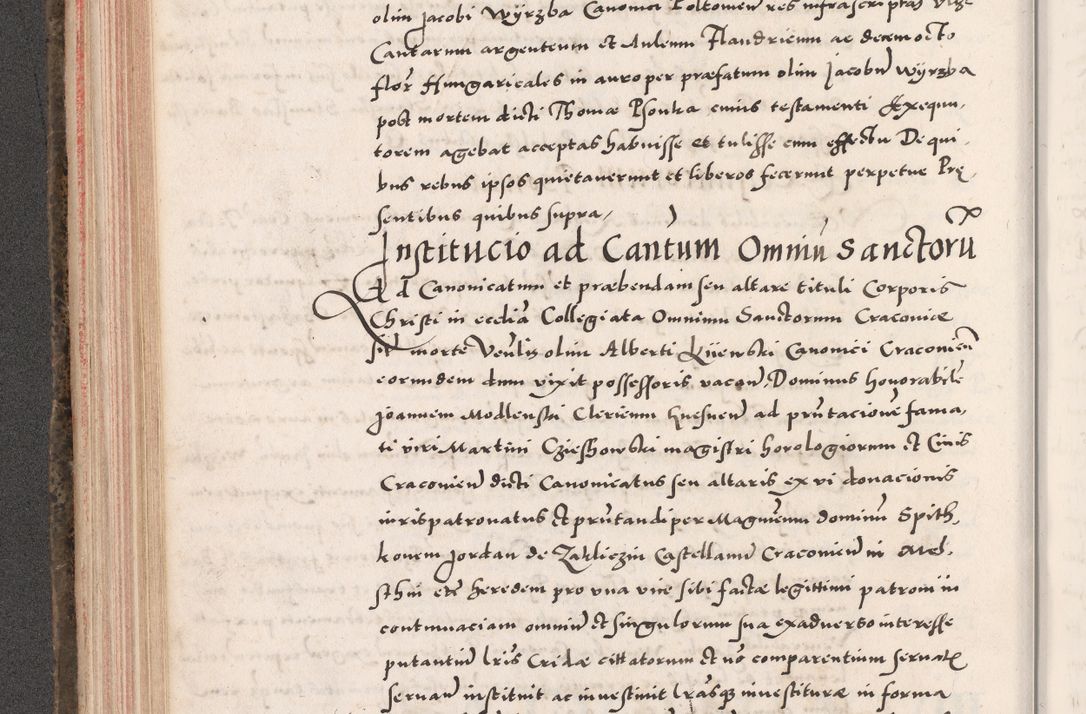 olim Jacobi Wÿrzba Canonici Poltovien̄ res infrascriptas vide
Cantarum argenteum et Auleum Flandricum ac decem octo
flor̄ Hungaricales in auro per præfatum olim Jacobū Wÿrzba
post mortem dicti Thomæ Psonka cuius testamenti Exequu,
torem agebat acceptas habuisse et tulisse cum effectu De qui,
bus rebus ipsos quietaverunt et liberos fecerunt perpetue Prę,
sentibus quibus supra,
Institucio ad Cantum Omniū Sanctorū
Ad Canonicatum et præbendam seu altare tituli Corporis
Christi in ecclīa Collegiata Omnium Sanctorum Cracoviæ
sit̄ morte Ven̄lis olim Alberti Kijewski Canonici Cracovien̄
eorundem dum vixit possessoris vacan̄, Dominus honorabilē
Joannem Modlenski Clericum Gnesnen̄ ad prn̄tacionē fama,
ti viri Martini Czieshowski magistri horologiorum et Civis
Cracovien̄ dicti Canonicatus seu altaris ex vi donacionis
iurispatronatus et prn̄tandi per Magn̄cum dominū Spith,
konem Jordan de Zakliczin Castellanū Cracovien̄ in Mel,
schin etc̄ heredem pro una vice sibi factæ legittimi patroni in
contumaciam omniū et singulorum sua ex adverso interesse
putantiū lr̄is Cridæ cittatorum et nō comparentium servatis
servan̄ instituit ac investivit lr̄asq̄ investituræ in forma